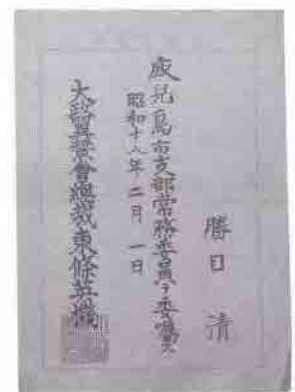 勝目 清
鹿児島市支部常務委員ヲ委嘱ス
昭和十八年二月一日
大政翼賛會總裁東條英機